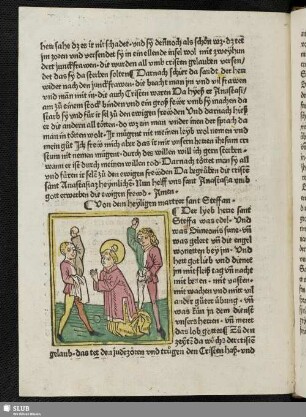 heu sahe dz es ir nit schadet vnd sy dennoch als schön wz dz tet
im zoren vnd versendet sy in ein ellende insel wol mit zweyhun
dert junckfrawen die wurden all vmb cristen gelauben versen/
det das sy da sterben solten Darnach schickt da sandt der heu
wider nach den junckfrawen die bracht man im vnd
vnd man mit in die auch Cristen warent Da hyeß er Anastasi/
am zů einem stock binden vnd ein groß feüer vmb sy machen da
starb sy vnd fůr ir sel zů den ewigen freüden Vnd darnach hieß
er die andern all tödten do wz ein man vnder inen der sprach da
man in tödten wolt Ir mügent mir meinen leyb wol nemen vnd
mein gůt Ich frew mich aber das ir mir vnsern herren ihesum cri
stum nit nemen mügent durch des willen will ich gern sterben
wann er ist durch meinen willen tod Darnach tödtet man sy all
vnd fůren ir sel zů den ewigen freüden Da begrůben die cristen
sant Anastasia heymlichen Nun helff vns sant Anastasia vmb
gott erwerben die ewigen freüd Amen
Von dem heyligen martrer sant Steffan
Der lyeb herre sant
Steffa was edel Vnd
was sun vn
was gelert von der engel
wonetten bey im Vnd
hett got lieb vnd dienet
im mit fleyß tag vn nacht
mit beten mit vasten
mit wachen vnd mit vil
ander gůter übung vn
was kün in dem dienst
vnsers herren vn meret
das lob gottes Zů den
zeytten da wůchs der cristen
gelaub das tet den juden zoren vnd trůgen den Cristen haß vnd
SLUB